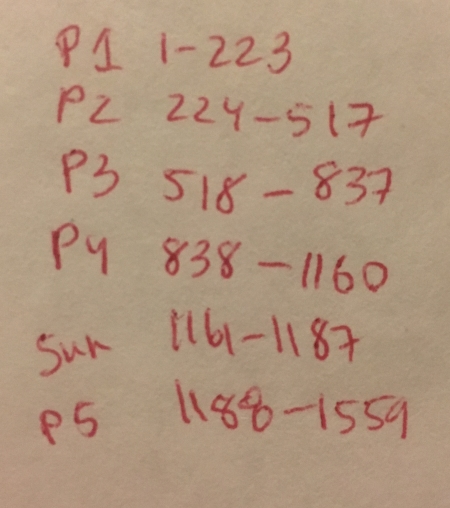 P1 1-223
P2 224-517
P3 518-837
P4 838-1160
Sun 1161-1187
P5 1188-1559